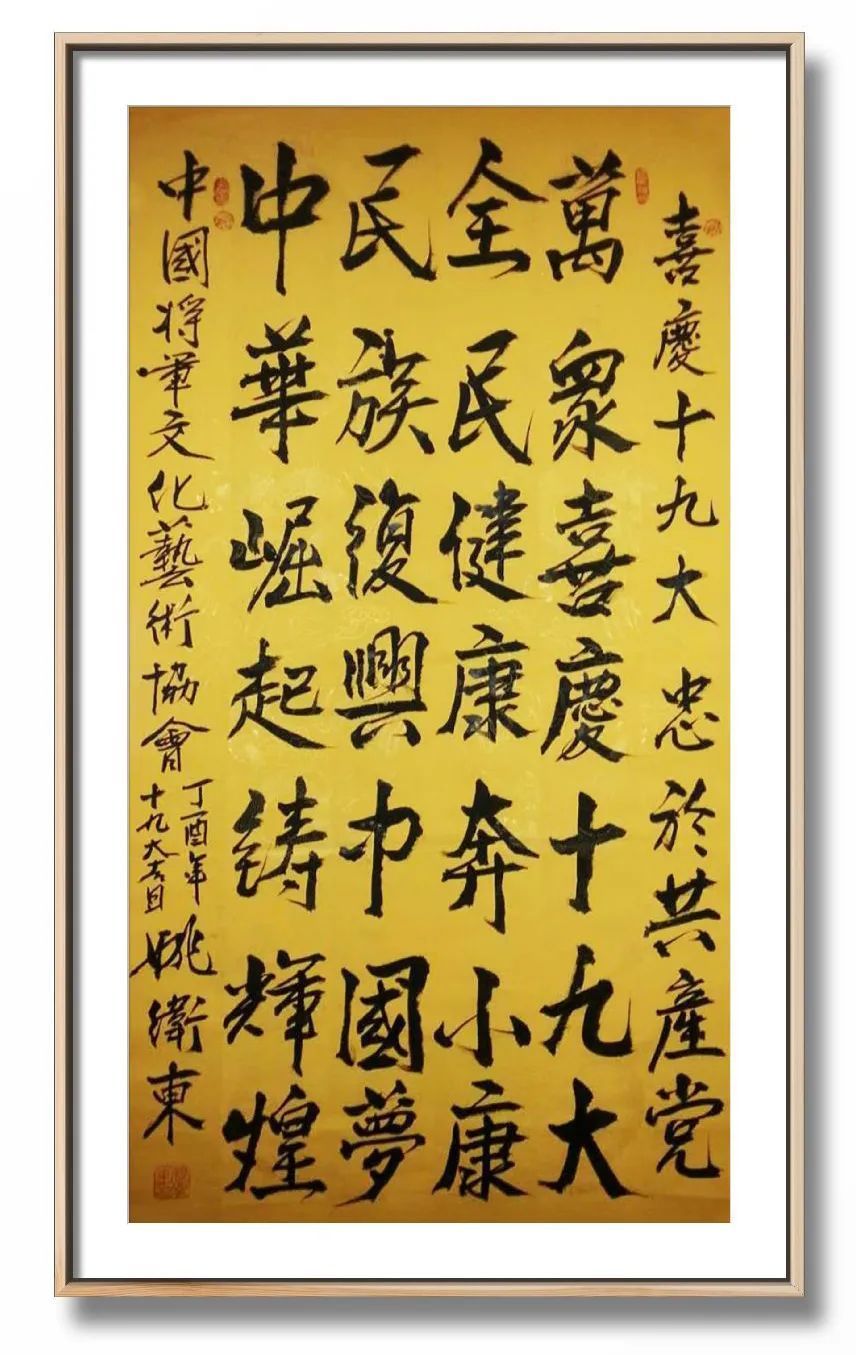 喜慶十九大忠於共產党
萬衆喜慶十九大
全民健康奔小康
民族復興中國夢
中華崛起铸輝煌
中國将軍文化藝術協會
丁酉年
十九大吉日
姚衛東